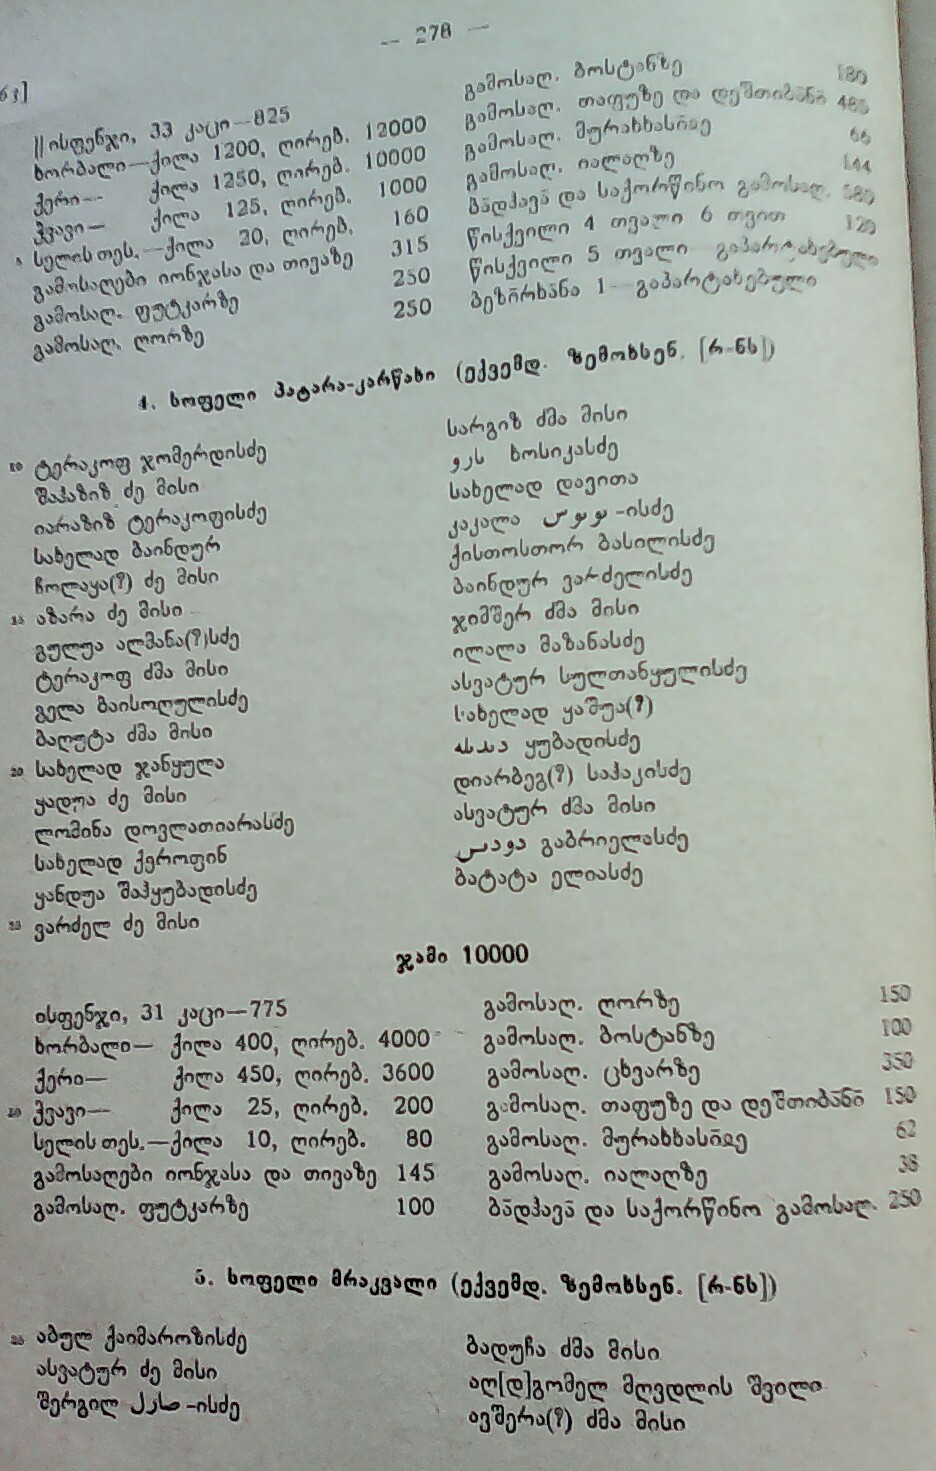 — 278 —
63]
|| ისფენჯი, 33 კაცი—825
ხორბალი—ქილა 1200, ღირებ. 12000
ქერი— ქილა 1250, ღირებ. 10000
ჭვავი— ქილა 125, ღირებ. 1000
5 სელის თეს.—ქილა 20, ღირებ. 160
გამოსაღები იონჯასა და თივაზე 315
გამოსაღ. ფუტკარზე 250
გამოსაღ. ღორზე 250
გამოსაღ. ბოსტანზე 180
გამოსაღ. თაფუზე და დეშთიბანი
გამოსაღ. მურახხასიიე 66
გამოსაღ. იალაღზე 144
ბადჰავა და საქორწინო გამოსაღ.
წისქვილი 4 თვალი 6 თვით 120
წისქვილი 5 თვალი—გაპარტახებული
ბეზირხანა 1—გაპარტახებული
4. სოფელი პატარა-კარწახი (ექვემდ. ზემოხსენ. [რ-ნს])
10 ტერაკოფ ჯომერდისძე
შაჰაზიზ ძე მისი
იარაზიზ ტერაკოფისძე
სახელად ბაინდურ
ჩოლაყა(?) ძე მისი
15 აზარა ძე მისი
გულუა ალმანა(?)სძე
ტერაკოფ ძმა მისი
გელა ბაისოღულისძე
ბაღუტა ძმა მისი
20 სახელად ჯანყულა
ყადუა ძე მისი
ლომინა დოვლათიარასძე
სახელად ქეროფინ
ყანდუა შაჰყუბადისძე
25 ვარძელ ძე მისი
სარგიზ ძმა მისი
ხოსიკასძე
სახელად დავითა
კაკალა -ისძე
ქისთოსთორ ბასილისძე
ბაინდურ ვარძელისძე
ჯიმშერ ძმა მისი
ილალა მაზანასძე
ასვატურ სულთანყულისძე
სახელად ყაშუა(?)
ყუბადისძე
დიარბეგ(?) საჰაკისძე
ასვატურ ძმა მისი
გაბრიელასძე
ბატატა ელიასძე
ჯამი 10000
ისფენჯი, 31 კაცი—775
ხორბალი— ქილა 400, ღირებ. 4000
ქერი— ქილა 450, ღირებ. 3600
30 ჭვავი— ქილა 25, ღირებ. 200
სელის თეს.—ქილა 10, ღირებ. 80
გამოსაღები იონჯასა და თივაზე 145
გამოსაღ. ფუტკარზე 100
გამოსაღ. ღორზე 150
გამოსაღ. ბოსტანზე 100
გამოსაღ. ცხვარზე 350
გამოსაღ. თაფუზე და დეშთიბანი 150
გამოსაღ. მურახხასიიე 62
გამოსაღ. იალაღზე 38
ბადჰავა და საქორწინო გამოსაღ. 250
5. სოფელი მრაკვალი (ექვემდ. ზემოხსენ. [რ-ნს])
35 აბულ ქაიმაროზისძე
ასვატურ ძე მისი
შერგილ -ისძე
ბადუჩა ძმა მისი
აღ[დ]გომელ მღვდლის შვილი
ავშერა(?) ძმა მისი